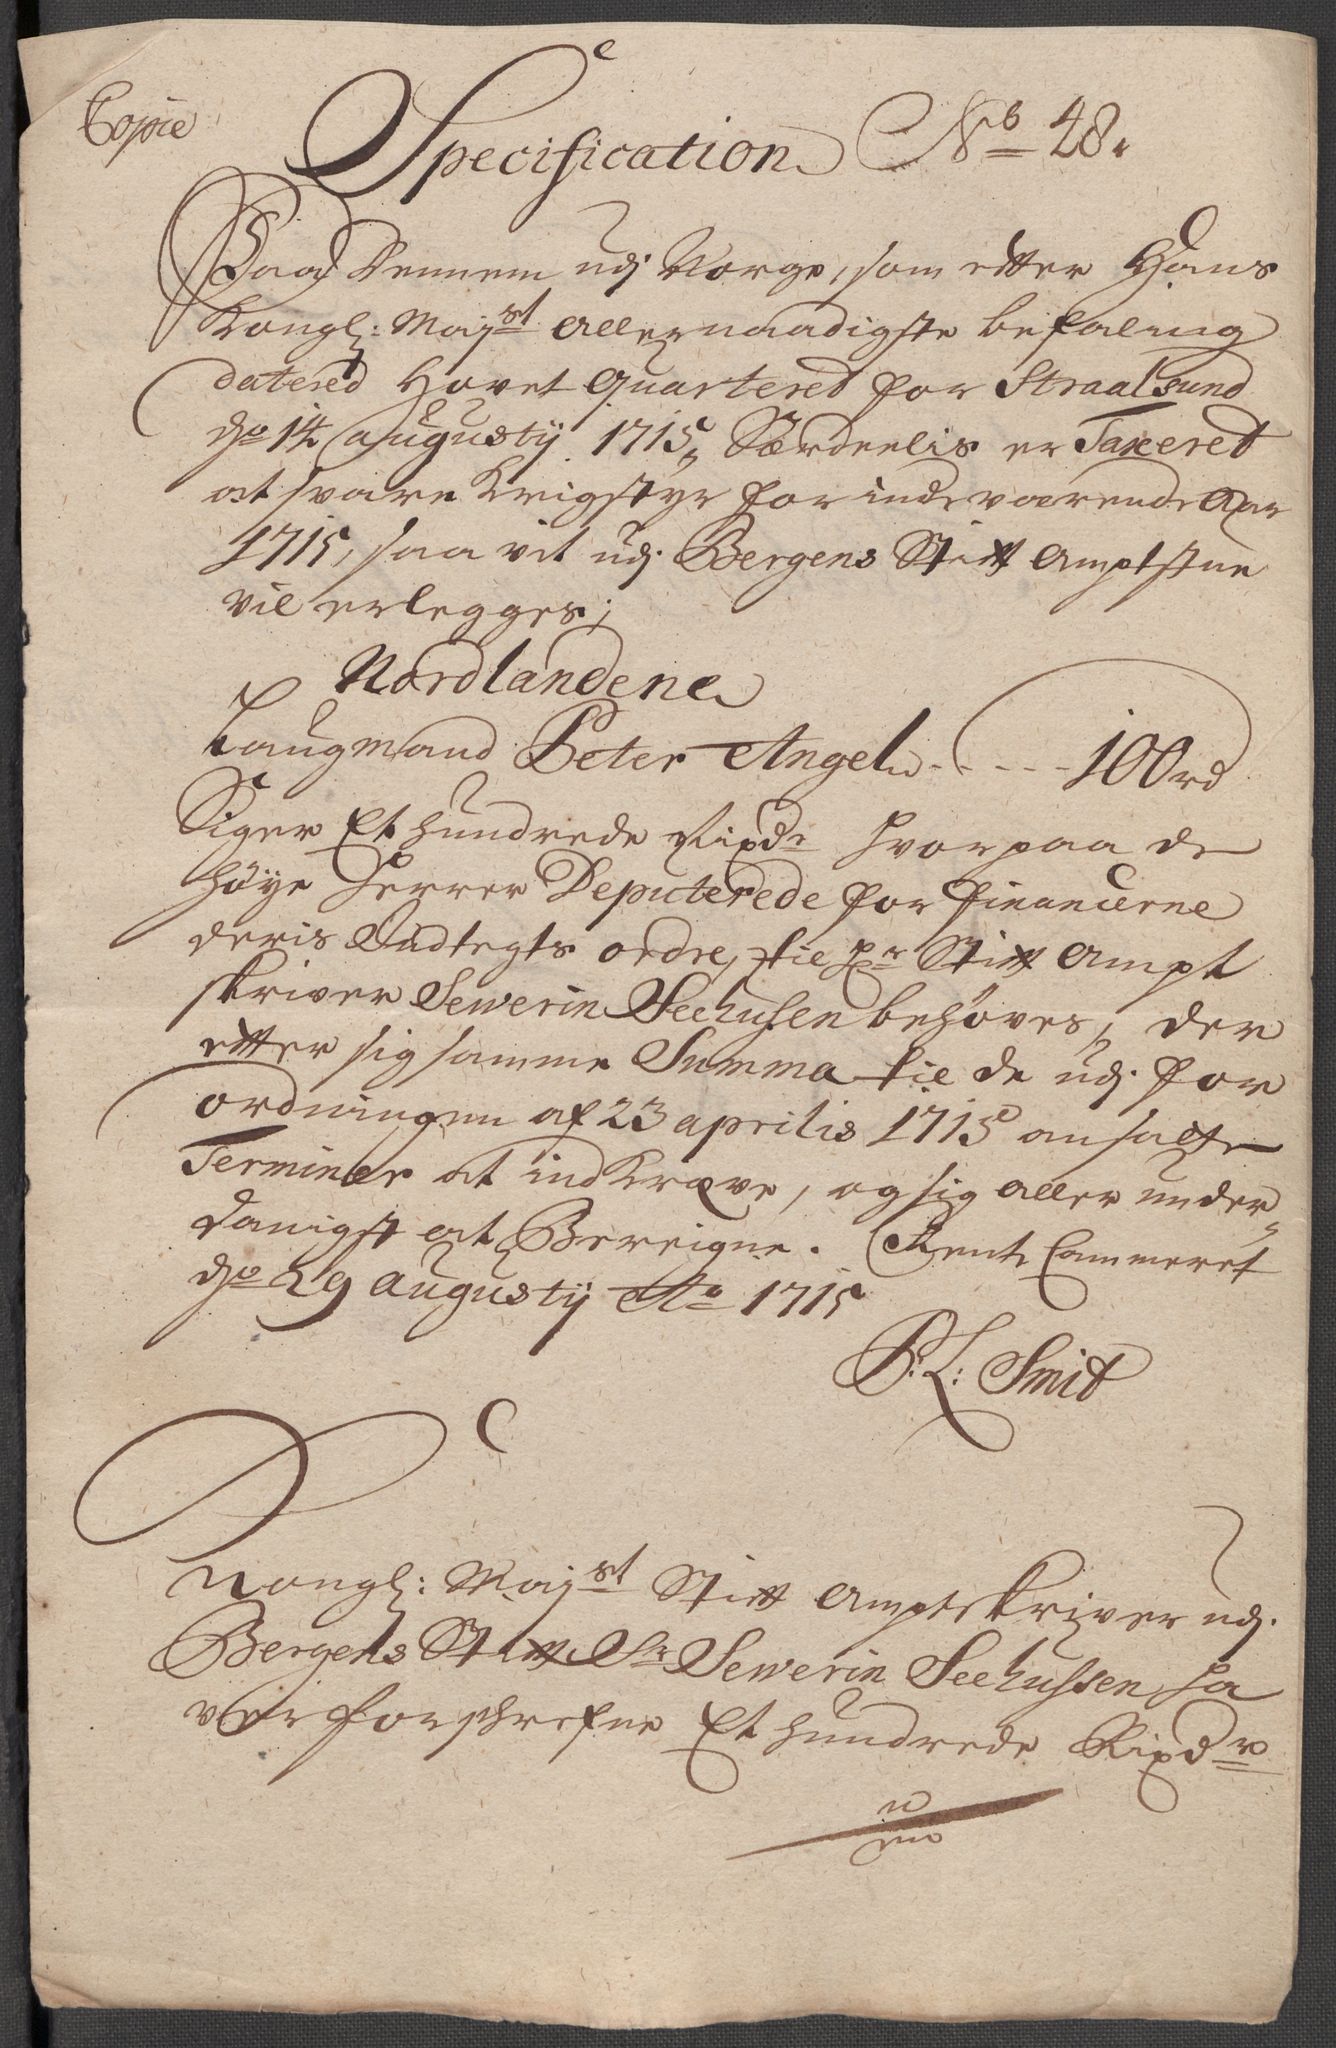 Copie
Specification No 48.
Paa Dennem udj Norge, som etter Hans
Kongl: Mayst allernaadigste befaling
datered Hovet Quarteret for Straalsund
do 14 augustij 1715, Særdeelis er Taxeret
at svare Krigstyr for indeværende Aar
1715, saa vit udj Bergens Stift Amptstue
vil erlegges;
Nordlandene
Laugmand Peter Angel ..... 100 rd
Siger Et hundrede Rixdr hvorpaa de
høye Herrer Deputerede for financerne
deris Undtegts ordre, til hr Stift Ampt
skriver Sewerin Seehusen behøves, der
etter sig samme Summa til de udj for
ordningen af 23 aprilis 1715 ansatte
Terminer at indkræve, og sig aller under-
danigst at Beregne. Rente Cammeret
do 29 augustij Ao 1715
P: L: Smit
Kongl: Mayst Stift Amptskriver udj
Bergens Stift Sr Sewerin Seehussen ha
ver forschrefne Et hundrede Rixdr